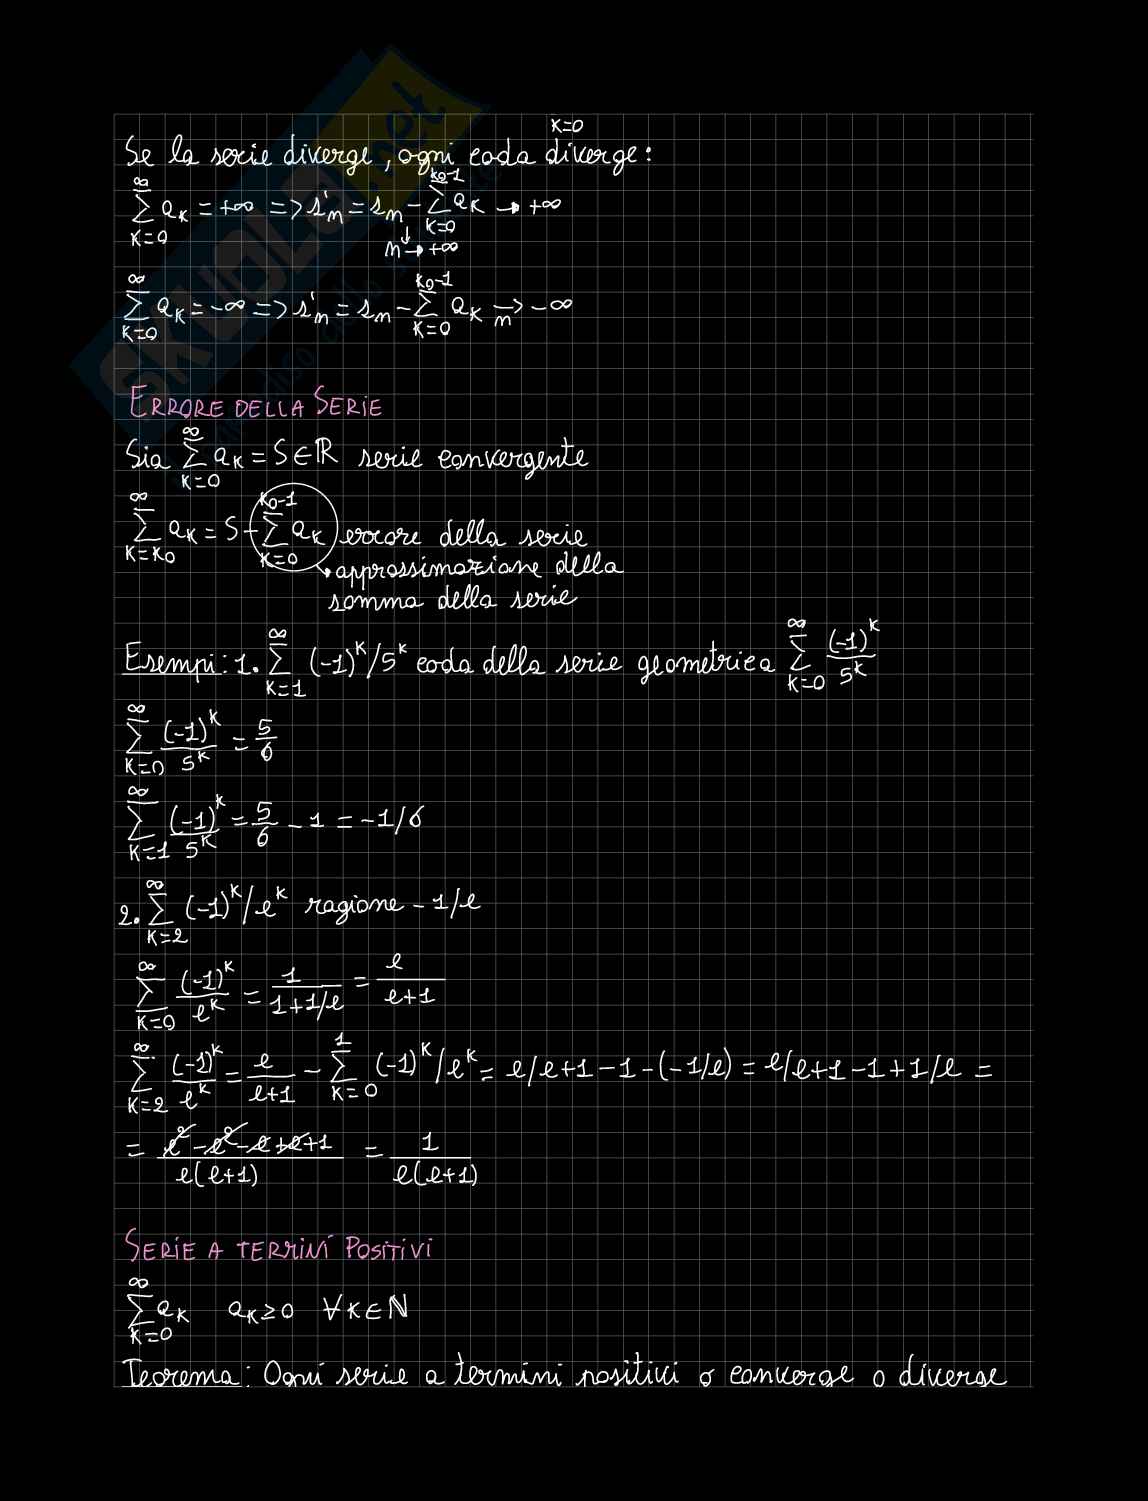 K=0
Se la serie diverge, ogni coda diverge:
∞∑K=0 aK = +∞ => s'm = sm - K0-1∑K=0 aK → +∞
m→+∞
∞∑K=0 aK = -∞ => s'm = sm - K0-1∑K=0 aK →m -∞
ERRORE DELLA SERIE
Sia ∞∑K=0 aK = S ∈ ℝ serie convergente
∞∑K=K0 aK = S - K0-1∑K=0 aK errore della serie
approssimazione della
somma della serie
Esempi: 1. ∞∑K=1 (-1)^K/5^K coda della serie geometrica ∞∑K=0 (-1)^K/5^K
∞∑K=0 (-1)^K/5^K = 5/6
∞∑K=1 (-1)^K/5^K = 5/6 - 1 = -1/6
2. ∞∑K=2 (-1)^K/e^K ragione -1/e
∞∑K=0 (-1)^K/e^K = 1/(1+1/e) = e/(e+1)
∞∑K=2 (-1)^K/e^K = e/(e+1) - 1∑K=0 (-1)^K/e^K = e/e+1 - 1 - (-1/e) = e/e+1 - 1 + 1/e =
= (e² - e² - e + e + 1)/e(e+1) = 1/e(e+1)
SERIE A TERMINI POSITIVI
∞∑K=0 aK aK ≥ 0 ∀K ∈ ℕ
Teorema: Ogni serie a termini positivi o converge o diverge
SKUOLA.net